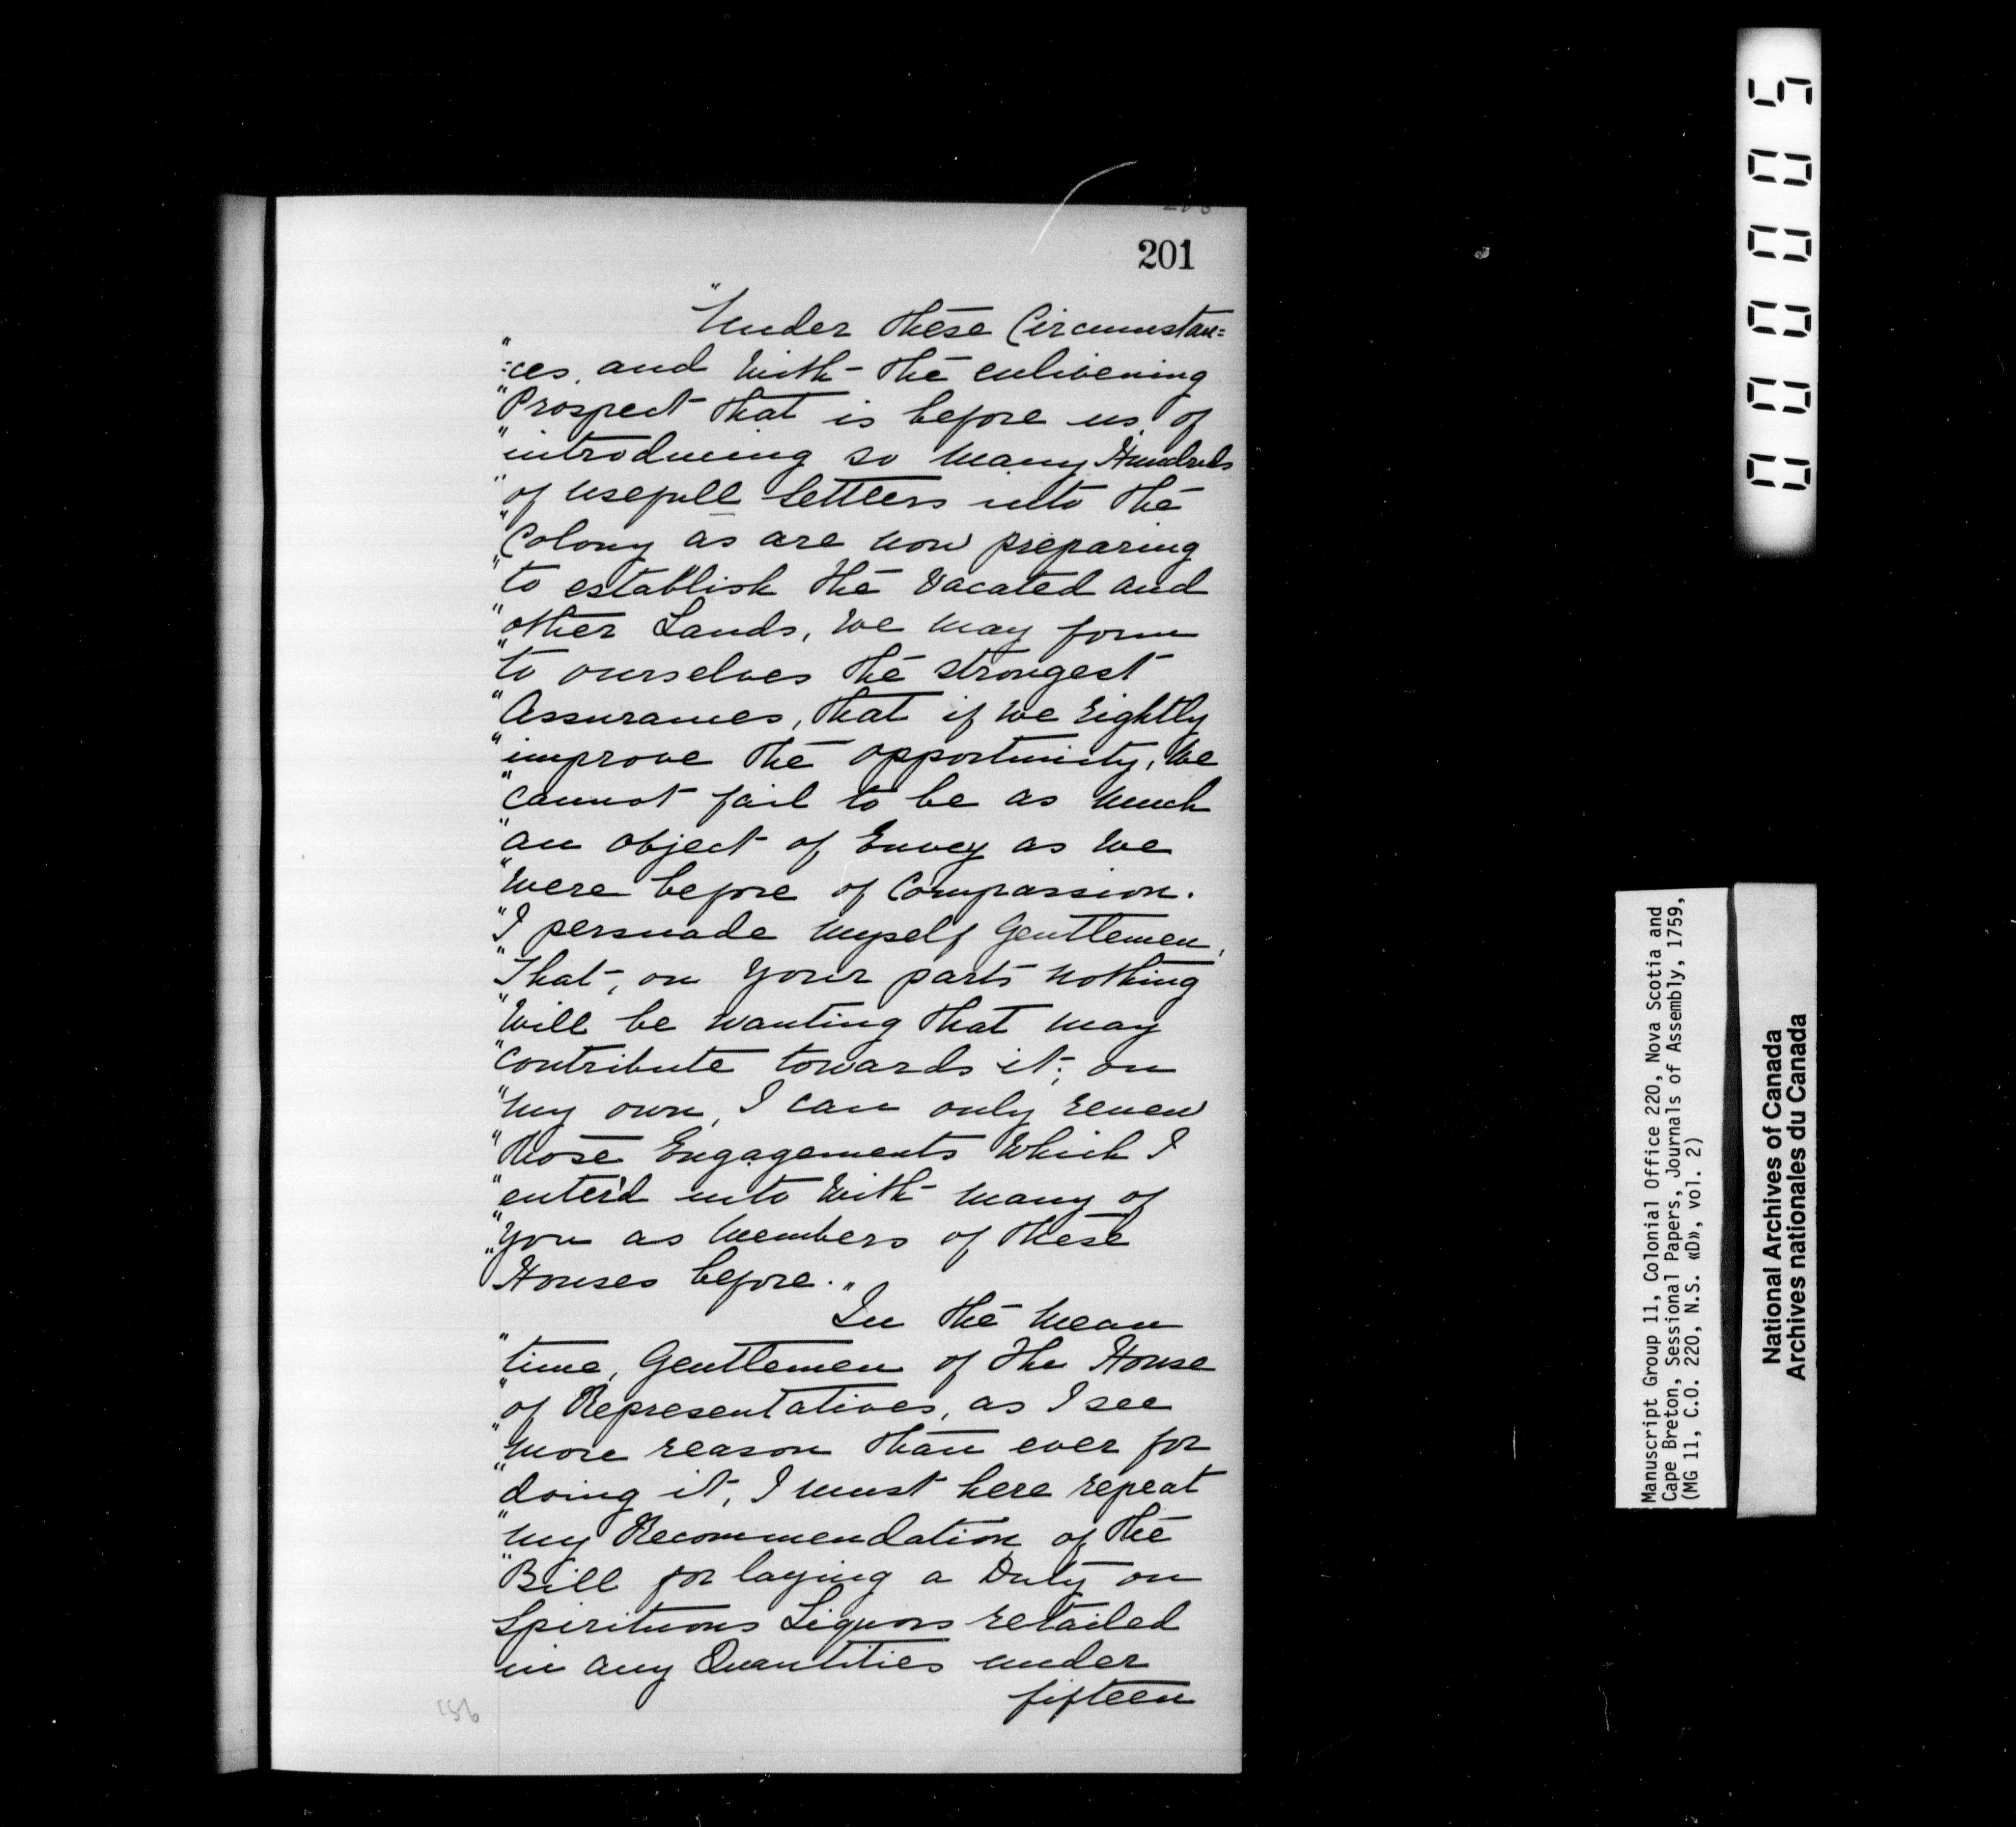 201
"Under these Circumstan=
"=ces, and with the enlivening
"Prospect that is before us, of
"introducing so many Hundreds
"of usefull Settlers into the
"Colony as are now preparing
"to establish the vacated and
"other Lands, we may form
"to ourselves the strongest
"Assurances, that if we rightly
"improve the opportunity, we
"cannot fail to be as much
"an object of Envey as we
"were before of Compassion.
"I persuade myself Gentlemen,
"That, on your parts nothing
"will be wanting that may
"contribute towards it; on
"my own, I can only renew
"those Engagements which I
"enter'd into with many of
"you as Members of these
"Houses before."
In the mean
"time, Gentlemen of the House
"of Representatives, as I see
"more reason than ever for
"doing it, I must here repeat
"my Recommendation of the
"Bill for laying a Duty on
Spirituous Liquors retailed
in any Quantities under
fifteen
156
000005
Manuscript Group 11, Colonial Office 220, Nova Scotia and
Cape Breton, Sessional Papers, Journals of Assembly, 1759,
(MG 11, C.O. 220, N.S. «D», vol. 2)
National Archives of Canada
Archives nationales du Canada